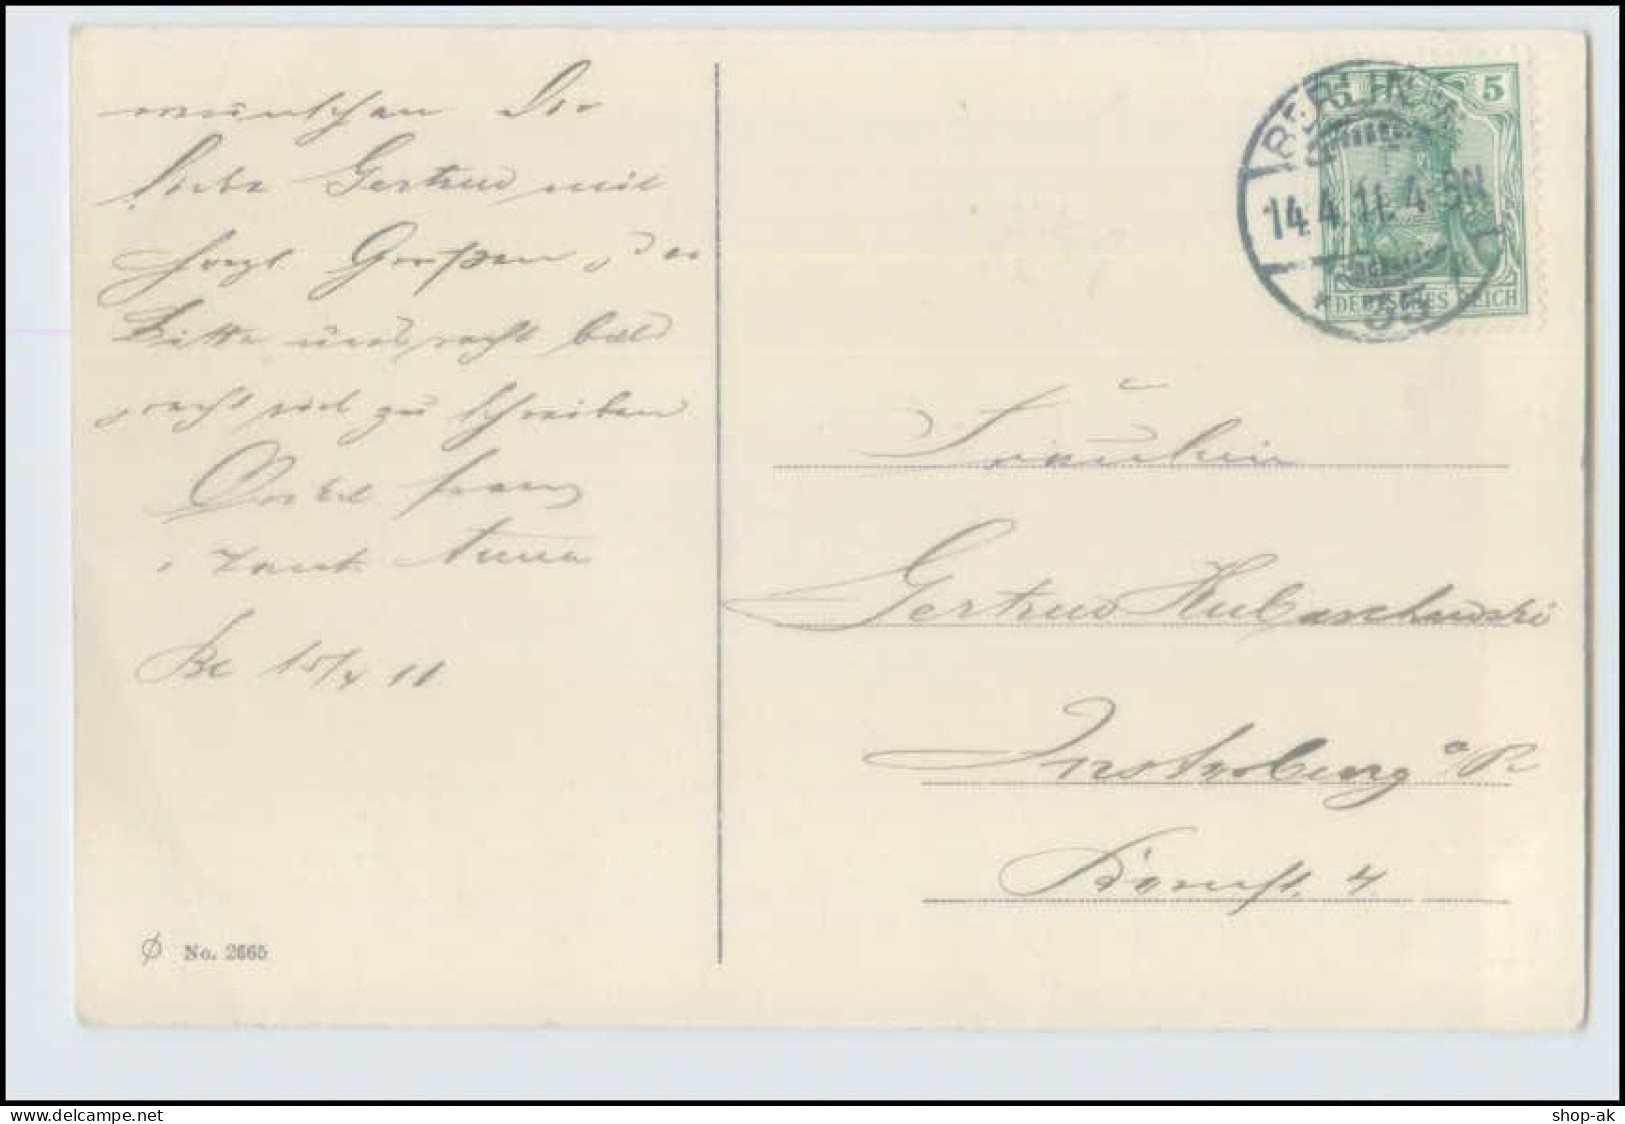 wünschen Dir
liebe Gertrud mit
herzl Grüßen
Bitte uns recht bald
recht viel zu schreiben
Onkel Franz
Tante Anna
Be 15/4 11
No. 2665
BERLIN
14.4.11.4-5N
35
5
DEUTSCHES REICH
Fräulein
Gertrud Kubaschewski
Insterburg o/Pr
4
www.delcampe.net
shop-ak